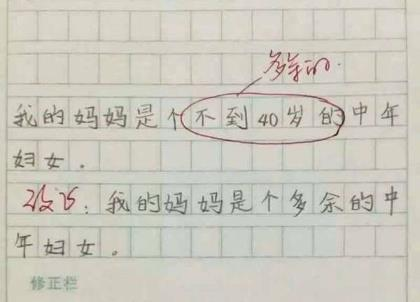 多余的.
我的妈妈是个不到40岁的中年
妇女.
改正:我的妈妈是个多余的中
年妇女。
修正栏